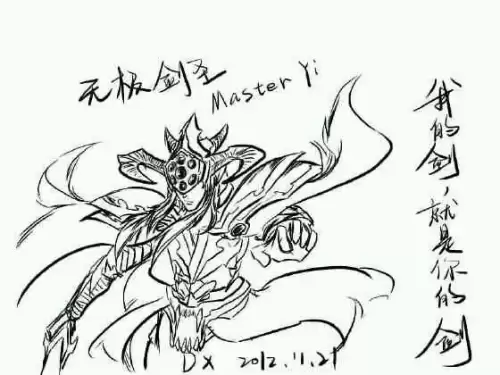 无极剑圣
Master Yi
我的剑,就是你的剑
DX 2012.11.21